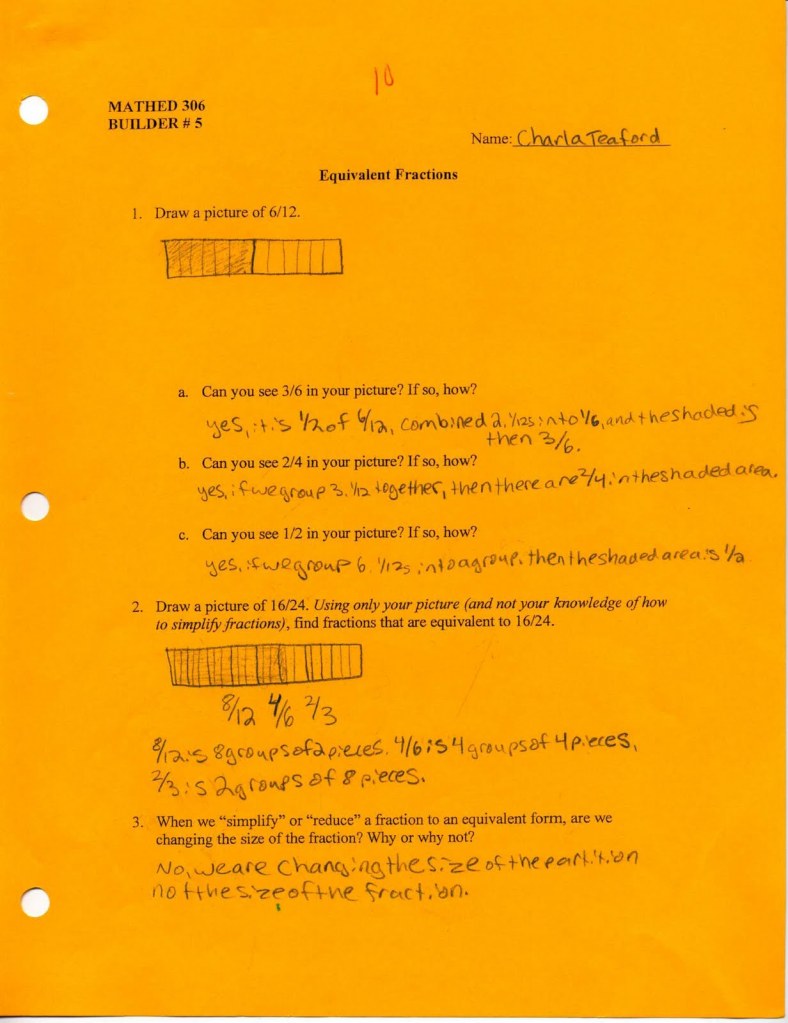 10
MATHED 306
BUILDER # 5
Name: Charla Teaford
Equivalent Fractions
1. Draw a picture of 6/12.
a. Can you see 3/6 in your picture? If so, how?
yes, it's 1/2 of 6/12, combined 2, 1/12s into 1/6, and the shaded is
then 3/6.
b. Can you see 2/4 in your picture? If so, how?
yes, if we group 3, 1/12 together, then there are 2/4 in the shaded area.
c. Can you see 1/2 in your picture? If so, how?
yes, if we group 6, 1/12s into a group, then the shaded area is 1/2
2. Draw a picture of 16/24. Using only your picture (and not your knowledge of how
to simplify fractions), find fractions that are equivalent to 16/24.
8/12 4/6 2/3
8/12 is 8 groups of 2 pieces. 4/6 is 4 groups of 4 pieces,
2/3 is 2 groups of 8 pieces.
3. When we “simplify” or “reduce” a fraction to an equivalent form, are we
changing the size of the fraction? Why or why not?
No, we are changing the size of the partition
not the size of the fraction.